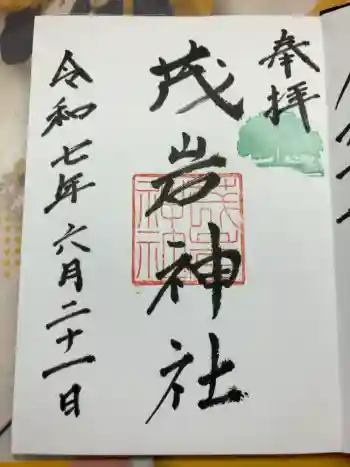 奉拝
茂岩神社
令和七年六月二十一日